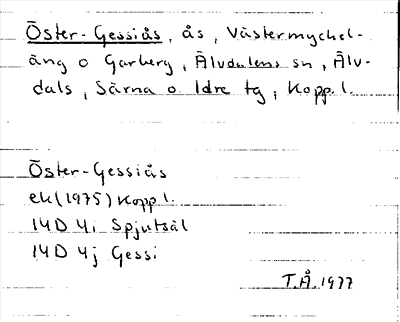 Öster-Gessiås, ås, Västermyckel-
äng o Garberg, Älvdalens sn, Älv-
dals, Särna o Idre tg, Kopp.l.
Öster-Gessiås
ek(1975) Kopp l.
14D 4i Spjutsäl
14D 4j Gessi
T.Å. 1977